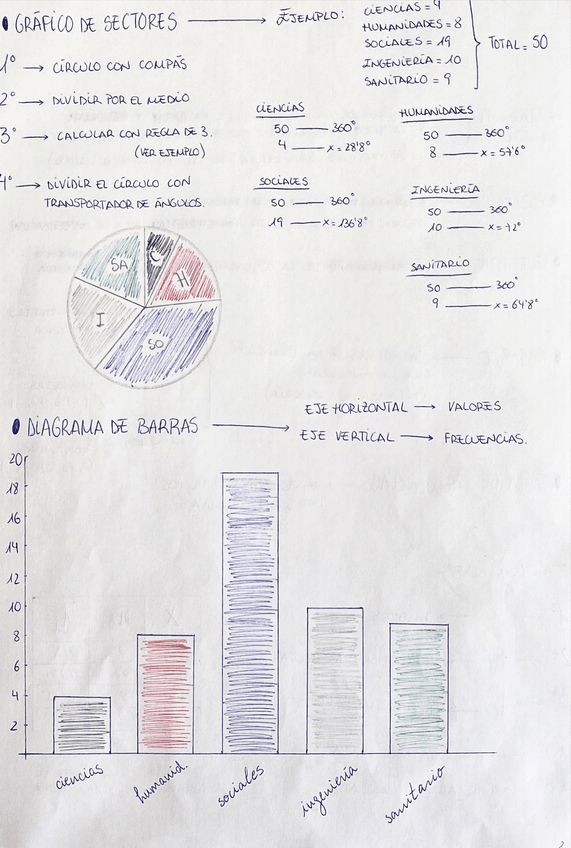 GRÁFICO DE SECTORES → EJEMPLO:
CIENCIAS = 4
HUMANIDADES = 8
SOCIALES = 19
INGENIERÍA = 10
SANITARIO = 9
TOTAL = 50
1º → CÍRCULO CON COMPÁS
2º → DIVIDIR POR EL MEDIO
3º → CALCULAR CON REGLA DE 3.
(VER EJEMPLO)
4º → DIVIDIR EL CÍRCULO CON
TRANSPORTADOR DE ÁNGULOS.
CIENCIAS
50 — 360°
4 — x = 28'8°
HUMANIDADES
50 — 360°
8 — x = 57'6°
SOCIALES
50 — 360°
19 — x = 136'8°
INGENIERÍA
50 — 360°
10 — x = 72°
SANITARIO
50 — 360°
9 — x = 64'8°
SA
C
H
I
SO
DIAGRAMA DE BARRAS →
EJE HORIZONTAL → VALORES
EJE VERTICAL → FRECUENCIAS.
20
18
16
14
12
10
8
6
4
2
ciencias
humanid.
sociales
ingeniería
sanitario